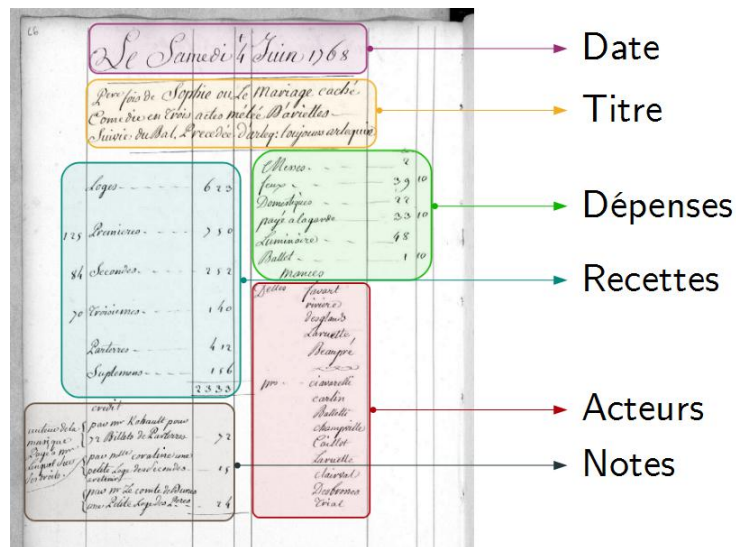 Le Samedi 4 Juin 1768
Pere fois de Sophie ou Le Mariage caché.
Comedie en trois actes mêlée D'ariettes
Suivie du Bal, Precedée d'arleq: toujours arlequin
Loges 623
125 Premieres 750
84 Secondes 252
70 Troisiemes 140
Parterres 412
Suplemens 156
2333
Messes 2
feux 39 10
Domestiques 22
payé à la garde 33 10
Luminaire 48
Ballet 1 10
Mances
Delles favart
riviere
desglands
Laruette
Beaupré
mrs ciavarelli
carlin
Balletti
champville
Caillot
Laruette
clairval
Desbrosses
Trial
credit
auteur de la musique
par mr Kohault pour
72 Billets de Parterres 72
par melle coraline une
petite Loge des secondes 15
par mr Le comte de
une Petite Loge des 24
Date
Titre
Dépenses
Recettes
Acteurs
Notes